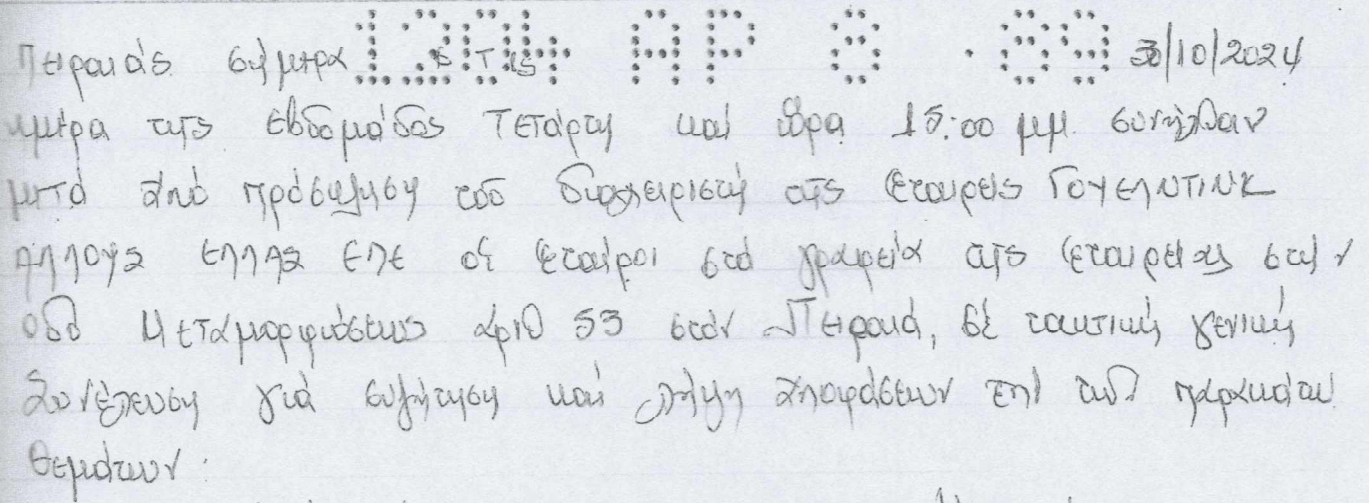 Πειραιάς σήμερα στις 30/10/2024
ημέρα της εβδομάδος Τετάρτη και ώρα 15:00 μμ συνήλθαν
μετά από πρόσκληση του διαχειριστή της εταιρείας ΓΟΥΕΛΝΤΙΝΚ
ΑΛΛΟΥΣ ΕΛΛΑΣ ΕΠΕ οι εταίροι στα γραφεία της εταιρείας στην
οδό Μεταμορφώσεως αριθ 53 στον Πειραιά, σε τακτική γενική
Συνέλευση για συζήτηση και λήψη αποφάσεων επί των παρακάτω
θεμάτων: